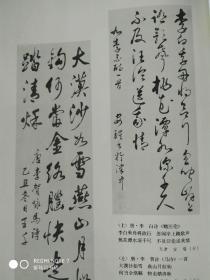 李白乘舟将欲行忽闻岸
上踏歌声桃花潭水深千尺
不及汪伦送我情
大漠沙如雪燕山月似
钩何当金络脑快走
踏清秋
唐李贺咏马诗
己丑冬月
（上）唐·李 白诗《赠汪伦》
李白乘舟将欲行 忽闻岸上踏歌声
桃花潭水深千尺 不及汪伦送我情
（左）唐·李 贺诗《马诗》一首
大漠沙如雪 燕山月似钩
何当金络脑 快走踏清秋